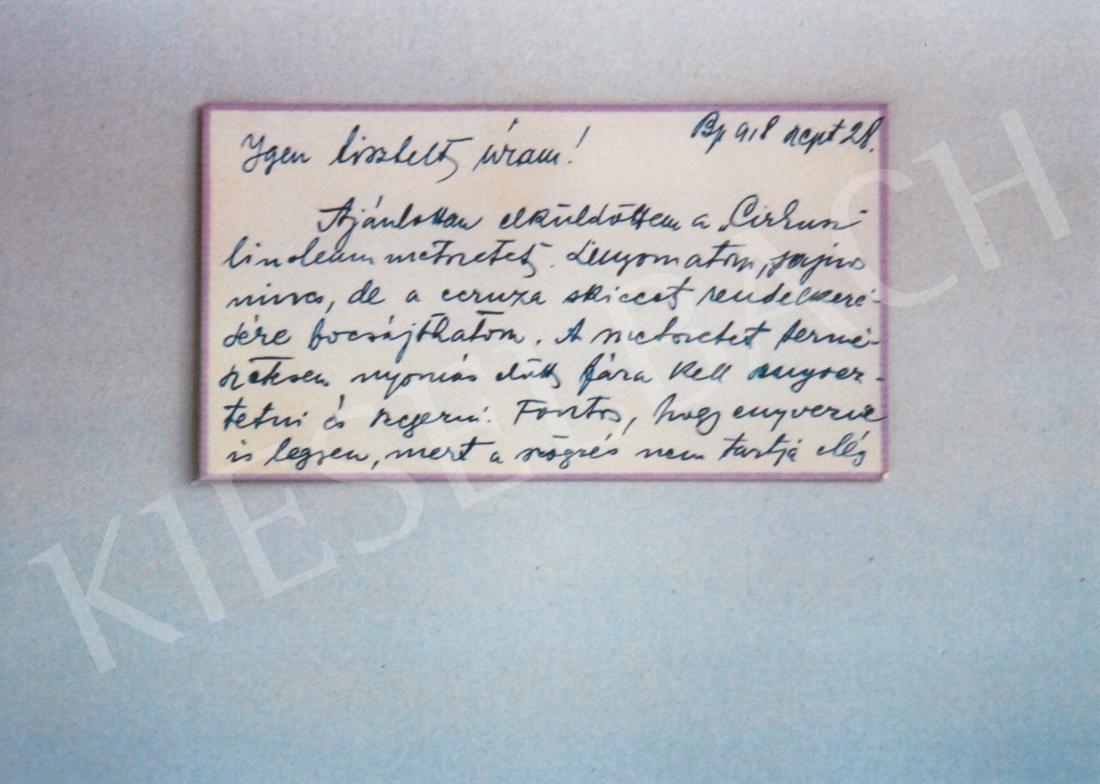 Bp 918 sept 28.
Igen tisztelt uram!
Ajánlottan elküldöttem a „Cirkusz”
linoleummetszetet. Lenyomatom, sajnos
nincs, de a ceruza skiccet rendelkezé-
sére bocsájthatom. A metszetet termé-
szetesen nyomás előtt fára kell enyvez-
tetni és szegezni. Fontos, hogy enyvezve
is legyen, mert a szögzés nem tartja elég
KIESELBACH